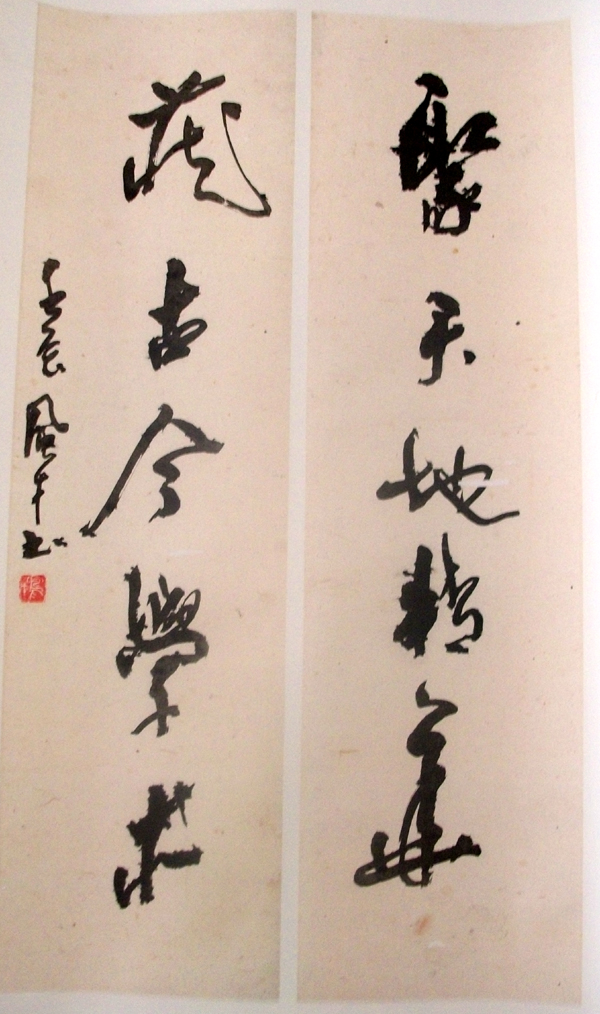 聚天地精華
藏古今學术
壬辰風书